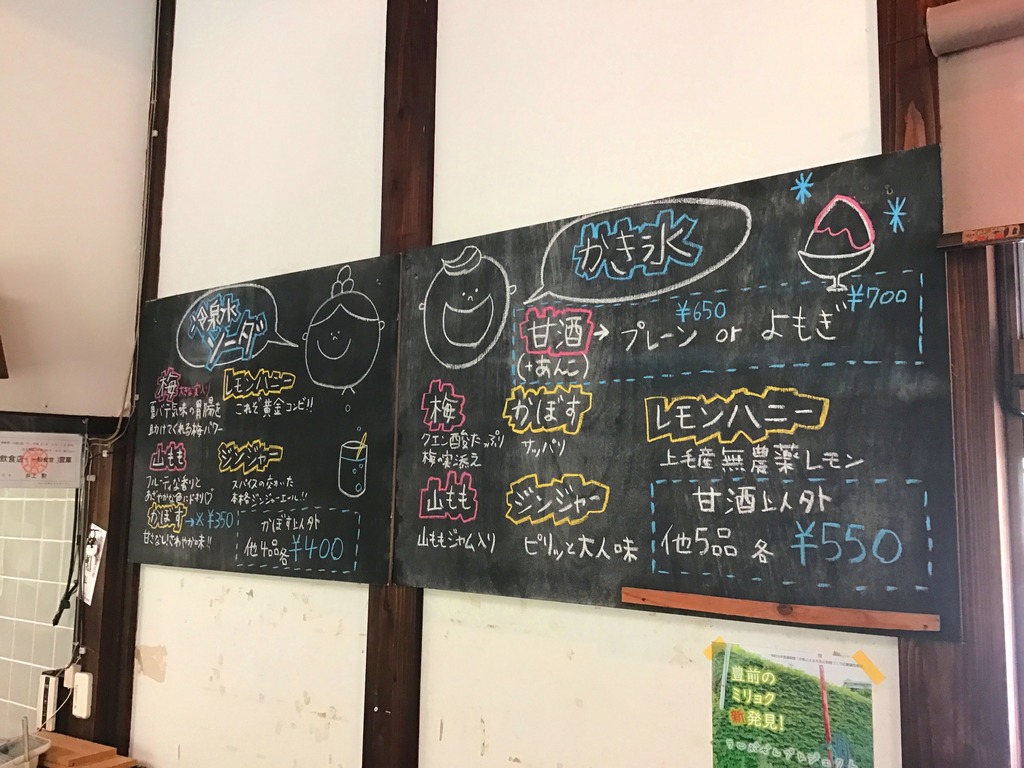 冷泉水
ソーダ
梅
夏バテ気味の胃腸を
助けてくれる梅パワー
レモンハニー
これぞ黄金コンビ!!
山もも
フルーティな香りと
あざやかな色にドキリ♡
ジンジャー
スパイスのきいた
本格ジンジャーエール!!
かぼす→×¥350
甘さなし!さわやか味!!
かぼす以外
他4品各¥400
かき氷
甘酒→プレーン ¥650 or よもぎ ¥700
(+あんこ)
梅
クエン酸たっぷり
梅の実添え
かぼす
サッパリ
レモンハニー
上毛産無農薬レモン
山もも
山ももジャム入り
ジンジャー
ピリッと大人味
甘酒以外
他5品各¥550
飲食店
営業
豊前の
ミリョク
新発見!